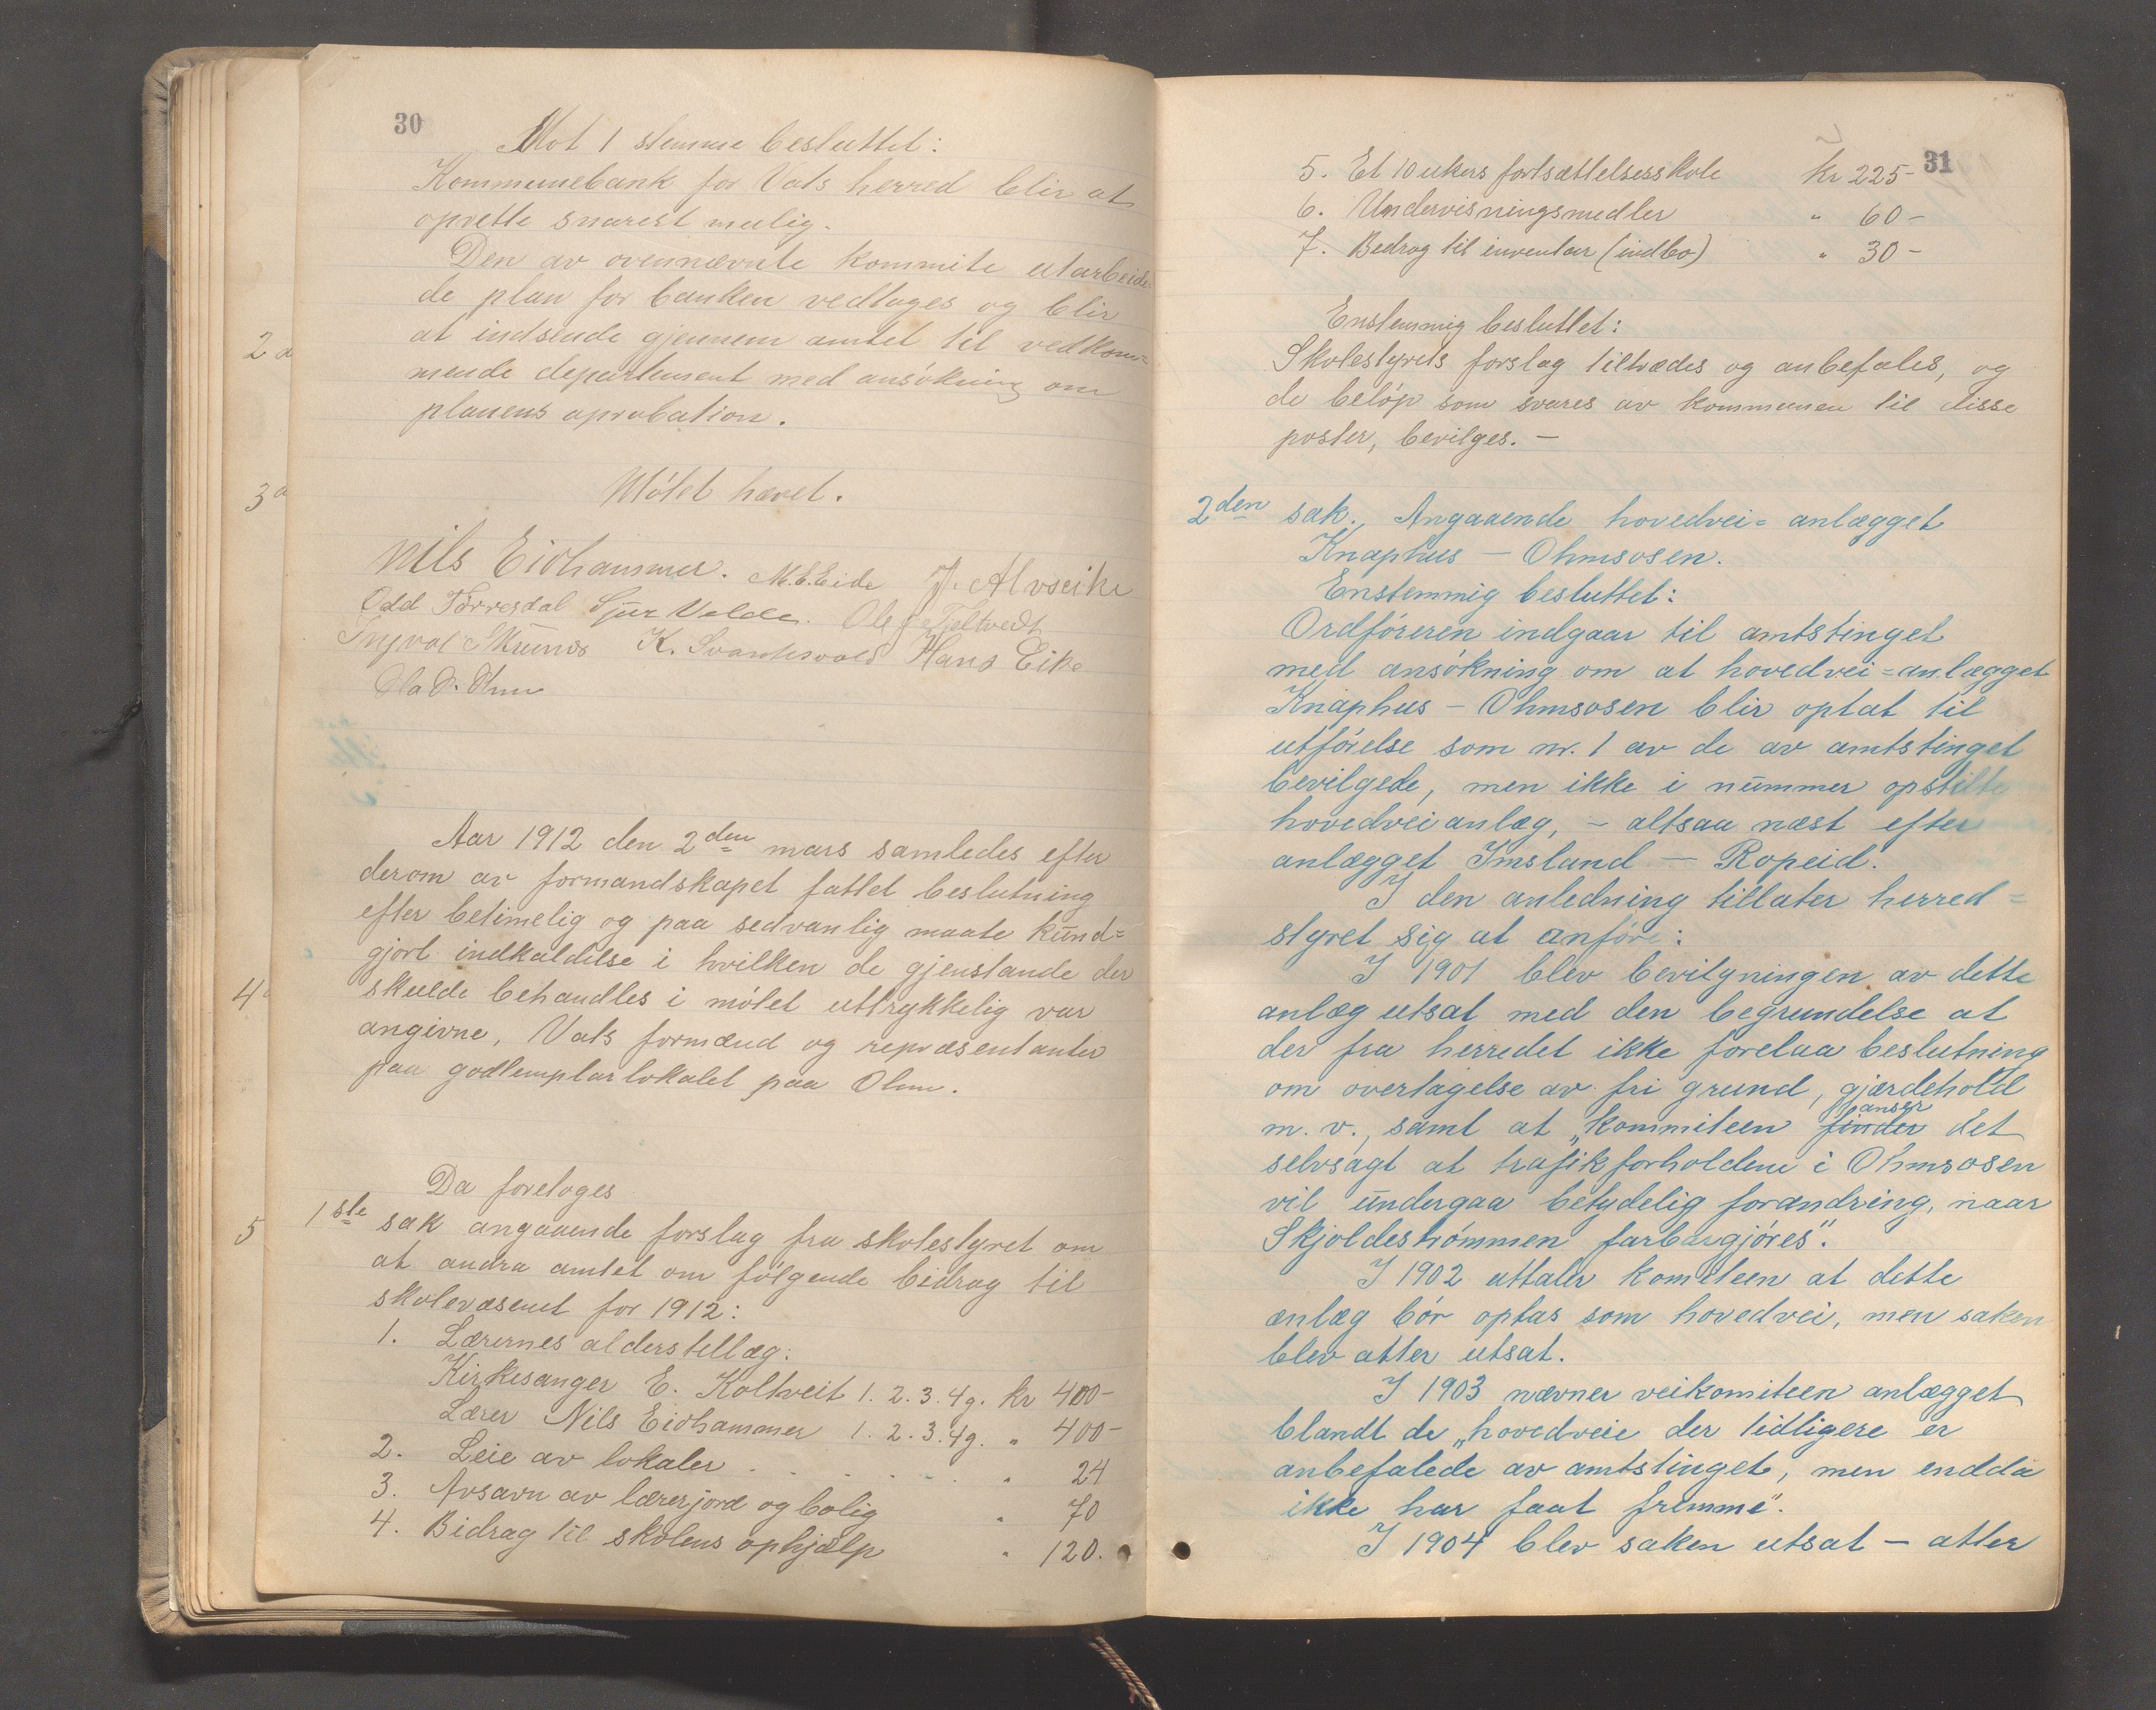 30
Mot 1 stemme besluttet:
Kommunebank for Vats herred blir at
oprette snarest mulig.
Den av ovennævnte kommite utarbeide-
de plan for banken vedtages og blir
at indsende gjennem amtet til vedkom=
mende departement med ansökning om
planens aprobation.
Mötet hævet.
Nils Eidhammer. M.E.Eide J. Alvseike
Odd Törresdal Sjur Velde. Ole
Ingval K. Svartevold Hans Eike
Ola
Aar 1912 den 2den mars samledes efter
derom av formandskapet fattet beslutning
efter betimelig og paa sedvanlig maate kund=
gjort indkaldelse i hvilken de gjenstande der
skulde behandles i mötet uttrykkelig var
angivne, Vats formænd og repræsentanter
paa godtemplarlokalet paa Ohm.
Da foretoges
1ste sak angaaende forslag fra skolestyret om
at andra amtet om følgende bidrag til
skolevæsenet for 1912:
1. Lærernes alderstillæg:
Kirkesanger E. Koltveit 1. 2. 3. 4g. kr 400-
Lærer Nils Eidhammer 1. 2. 3. 4g. " 400-
2. Leie av lokaler . . . . . . " 24
3. Avsavn av lærerjord og bolig " 70
4. Bidrag til skolens ophjælp " 120.
2
3
4
5
31
5. Et 10 ukers fortsættelsesskole kr 225-
6. Undervisningsmedler " 60-
7. Bedrag til inventar (indbo) " 30-
Enstemmig besluttet:
Skolestyrets forslag tiltrædes og anbefales, og
de belöp som svares av kommunen til disse
poster, bevilges. -
2den sak. Angaaende hovedvei= anlægget
Knaphus - Ohmsosen.
Enstemmig besluttet:
Ordföreren indgaar til amtstinget
med ansökning om at hovedvei=anlægget
Knaphus - Ohmsosen blir optat til
utförelse som nr. 1 av de av amtstinget
bevilgede, men ikke i nummer opstilte
hovedveianlæg, - altsaa næst efter
anlægget Imsland - Ropeid.
I den anledning tillater herred=
styret sig at anföre:
I 1901 blev bevilgningen av dette
anlæg utsat med den begrundelse at
der fra herredet ikke forelaa beslutning
om overtagelse av fri grund, gjærdehold
m. v., samt at „kommiteen finder anser det
selvsagt at trafikforholdene i Ohmsosen
vil undergaa betydelig forandring, naar
Skjoldeströmmen farbargjöres".
I 1902 uttaler komiteen at dette
anlæg bör optas som hovedvei, men saken
blev atter utsat.
I 1903 nævner veikomiteen anlægget
blandt de „hovedveie der tidligere er
anbefalede av amtstinget, men endda
ikke har faat fremme".
I 1904 blev saken utsat - atter